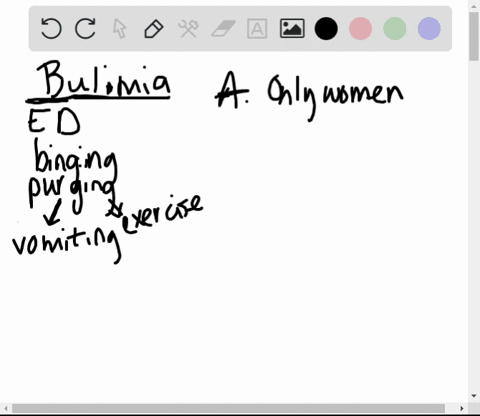 Bulimia
ED
binging
purging
vomiting
exercise
A. Only women